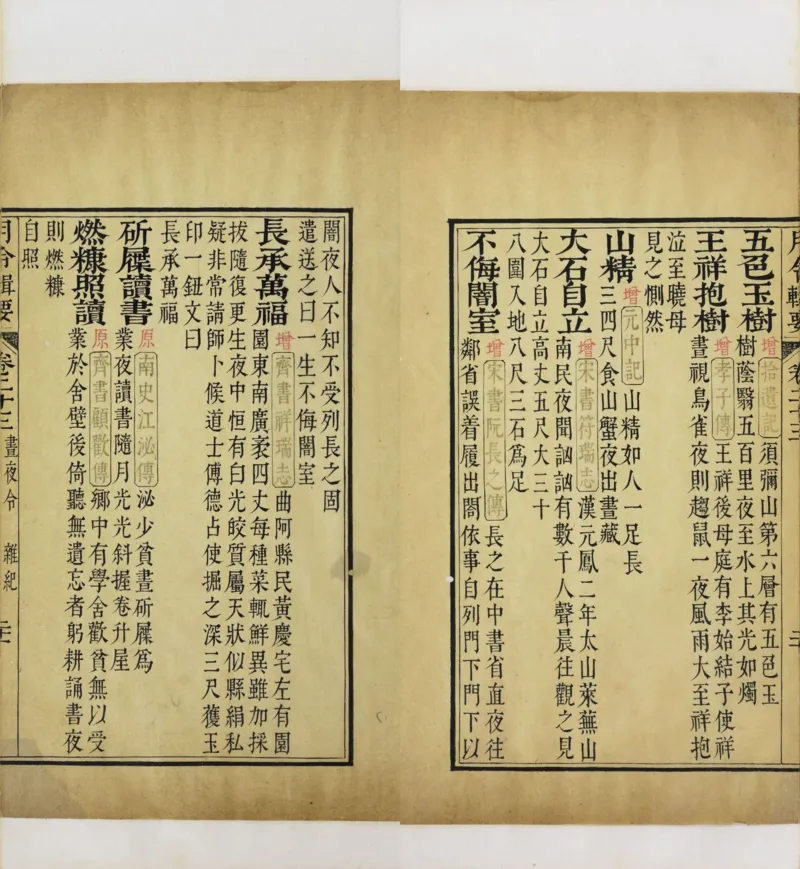 月令輯要 卷二十三
五色玉樹 增 拾遺記 須彌山第六層有五色玉
樹蔭翳五百里夜至水上其光如燭
王祥抱樹 增 孝子傳 王祥後母庭有李始結子使祥
晝視鳥雀夜則趨鼠一夜風雨大至祥抱
泣至曉母
見之惻然
山精 增 元中記 山精如人一足長
三四尺食山蟹夜出晝藏
大石自立 增 宋書符瑞志 漢元鳳二年太山萊蕪山
南民夜聞訩訩有數千人聲晨往觀之見
大石自立高丈五尺大三十
八圍入地八尺三石爲足
不侮闇室 增 宋書阮長之傳 長之在中書省直夜往
鄰省誤着履出閤依事自列門下門下以
闇夜人不知不受列長之固
遣送之曰一生不侮闇室
長承萬福 增 齊書祥瑞志 曲阿縣民黃慶宅左有園
園東南廣袤四丈每種菜輒鮮異雖加採
拔隨復更生夜中恒有白光皎質屬天狀似縣絹私
疑非常請師卜候道士傅德占使掘之深三尺獲玉
印一鈕文曰
長承萬福
斫屧讀書 原 南史江泌傳 泌少貧晝斫屧爲
業夜讀書隨月光光斜握卷升屋
燃糠照讀 原 齊書顧歡傳 鄉中有學舍歡貧無以受
業於舍壁後倚聽無遺忘者躬耕誦書夜
則燃糠
自照
月令輯要 卷二十三 晝夜令 雜紀